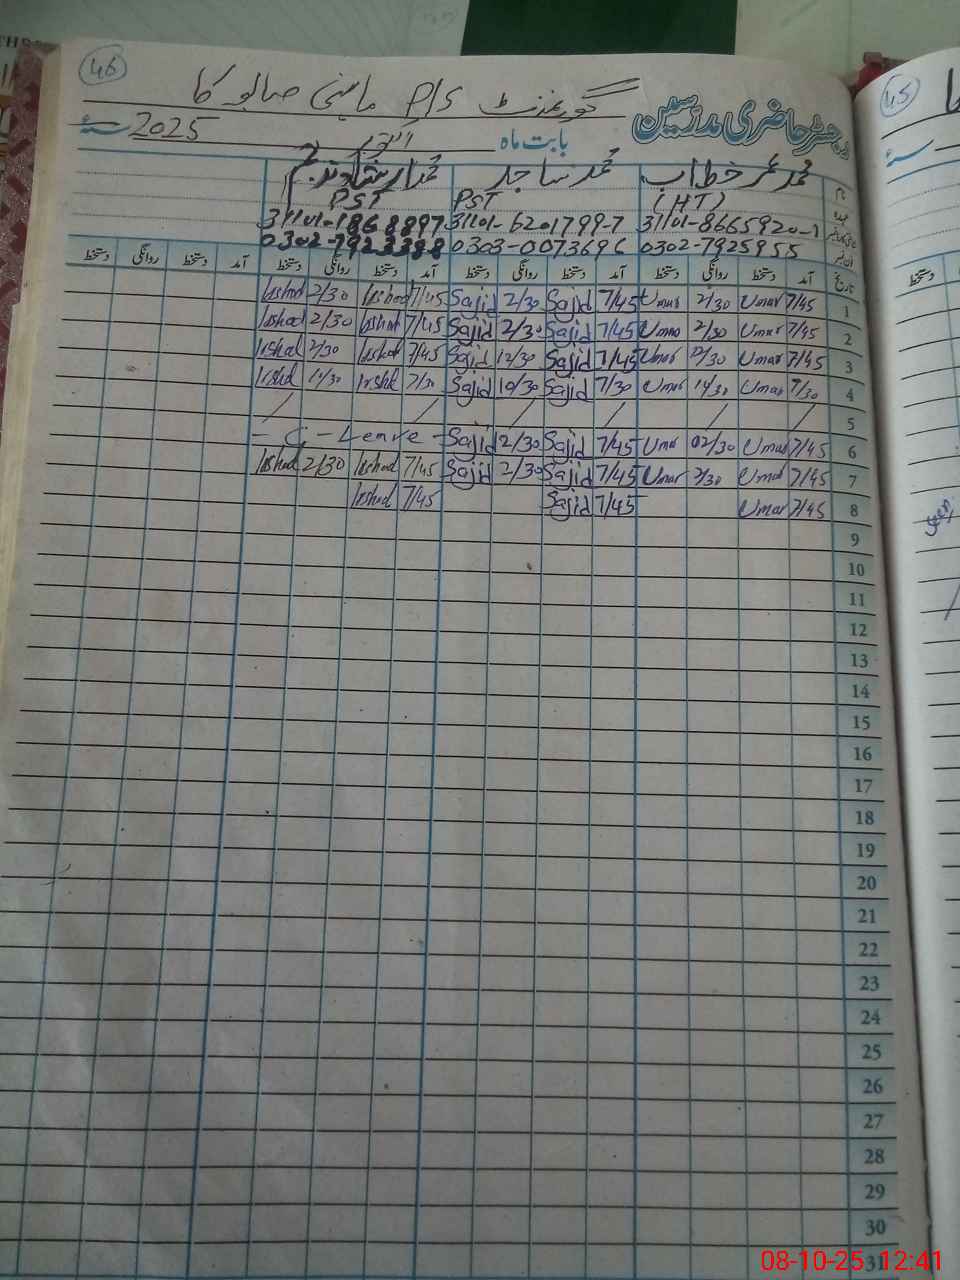 46
گورنمنٹ P/S مابنی صالو کا
45
رجسٹر حاضری مدرسین
بابت ماہ اکتوبر 2025 سنہ
نام محمد عمر خطاب محمد ساجد محمد ارشاد ندیم
عہدہ (HT) PST PST
31101-8665920-1 31101-6201799-7 31101-1868897
0302-7925955 0303-0073696 0302-7923388
تاریخ آمد دستخط روانگی دستخط آمد دستخط روانگی دستخط آمد دستخط روانگی دستخط آمد دستخط روانگی دستخط
دستخط
1 7/45 Umar 2/30 Umar 7/45 Sajid 2/30 Sajid 7/45 Irshad 2/30 Irshad
2 7/45 Umar 2/30 Umar 7/45 Sajid 2/30 Sajid 7/45 Irshad 2/30 Irshad
3 7/45 Umar 12/30 Umar 7/45 Sajid 12/30 Sajid 7/45 Irshad 2/30 Irshad
4 7/30 Umar 10/30 Umar 7/30 Sajid 10/30 Sajid 7/30 Irshd 10/30 Irshd
5 / / / / / /
6 7/45 Umar 02/30 Umar 7/45 Sajid 2/30 Sajid - C - Leave -
7 7/45 Umar 2/30 Umar 7/45 Sajid 2/30 Sajid 7/45 Irshad 2/30 Irshad
8 7/45 Umar 7/45 Sajid 7/45 Irshad
seen
9
10
11
12
13
14
15
16
17
18
19
20
21
22
23
24
25
26
27
28
29
30
31
08-10-25 12:41